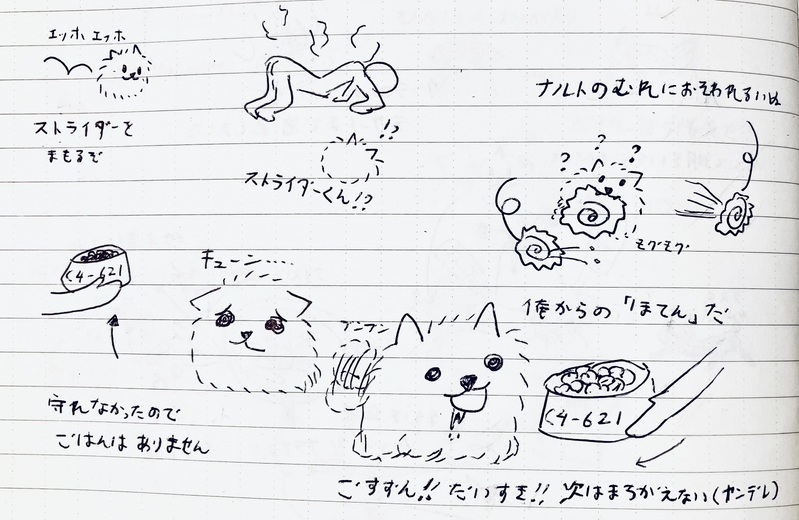 エッホ エッホ
ストライダーを
まもるぞ
!?
ストライダーくん!?
ナルトのむれにおそわれるいぬ
? ? ?
モグモグ
C4-621
キューン....
守れなかったので
ごはんは ありません
ブンブン
俺からの「ほてん」だ
C4-621
ごすずん!! だいすき!! 次はまちがえない(ヤンデレ)